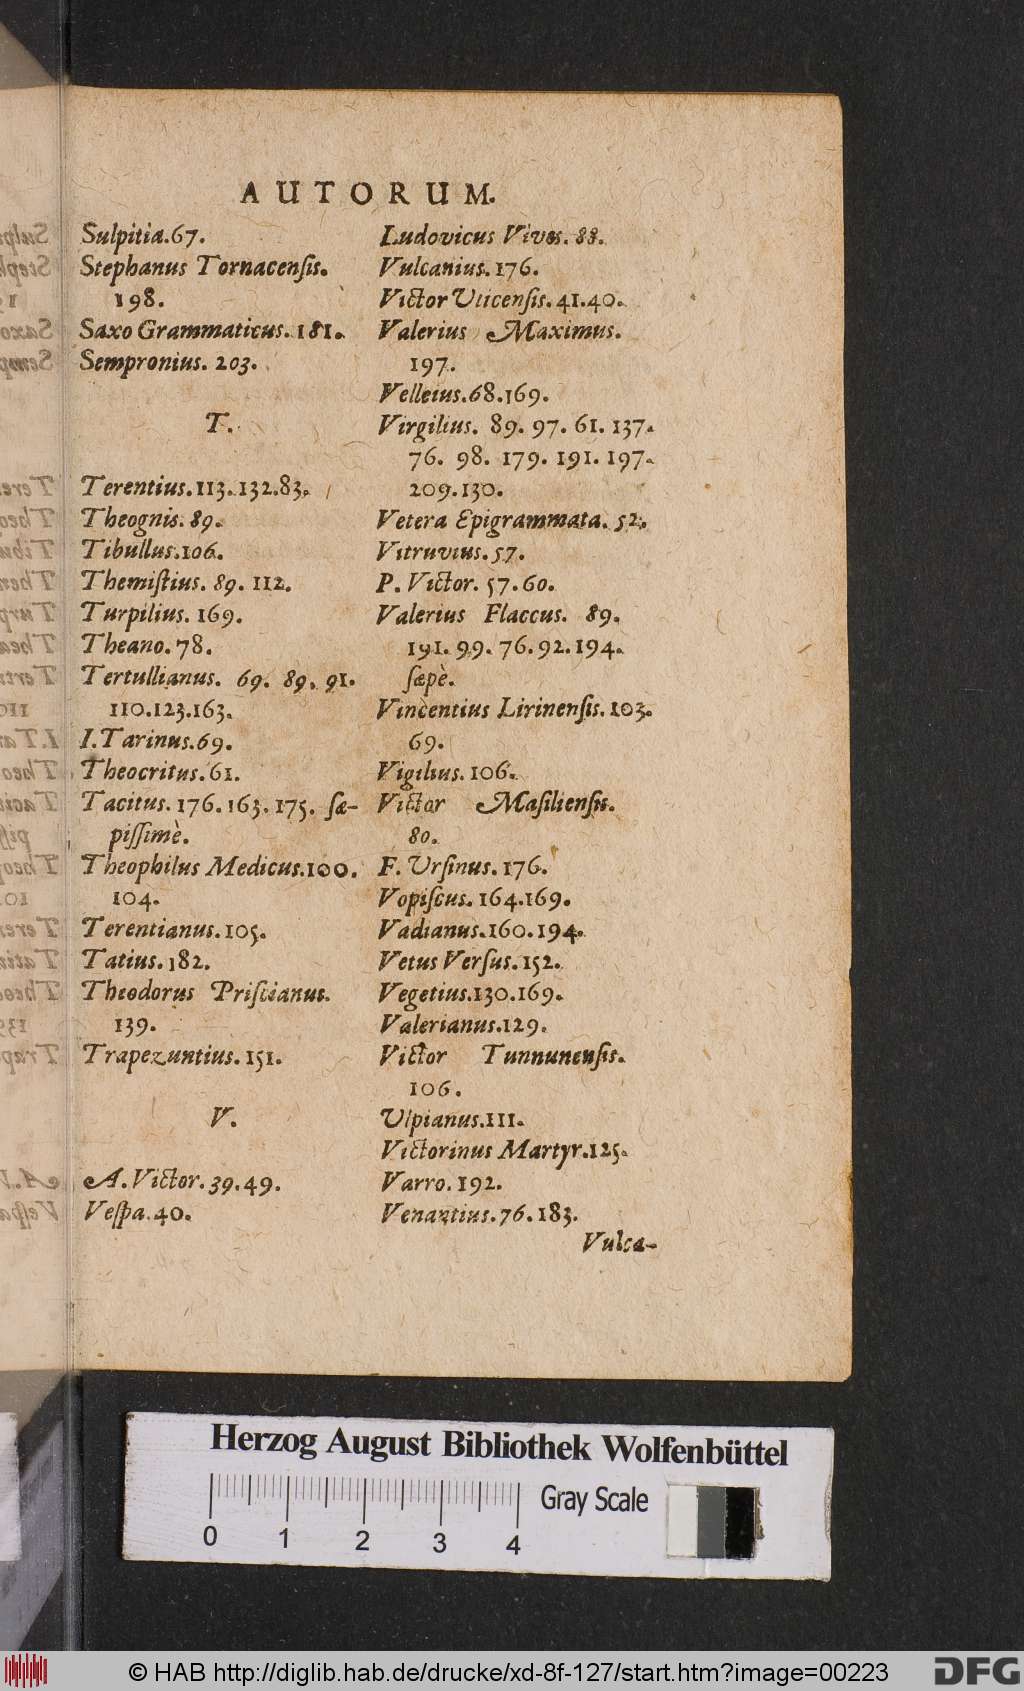 AUTORUM.
Sulpitia.67.
Stephanus Tornacensis.
198.
Saxo Grammaticus. 181.
Sempronius. 203.
T.
Terentius.113.132.83.
Theognis. 89.
Tibullus.106.
Themistius. 89. 112.
Turpilius. 169.
Theano. 78.
Tertullianus. 69. 89. 91.
110.123.163.
I. Tarinus.69.
Theocritus.61.
Tacitus. 176. 163. 175. sæ-
pissimè.
Theophilus Medicus.100.
104.
Terentianus.105.
Tatius.182.
Theodorus Priscianus.
139.
Trapezuntius.151.
V.
A. Victor.39.49.
Vespa.40.
Ludovicus Vives. 88.
Vulcanius.176.
Victor Uticensis.41.40.
Valerius Maximus.
197.
Velleius.68.169.
Virgilius. 89. 97. 61. 137.
76. 98. 179. 191. 197.
209.130.
Vetera Epigrammata. 52.
Vitruvius.57.
P. Victor. 57.60.
Valerius Flaccus. 89.
191. 99. 76. 92. 194.
sæpè.
Vincentius Lirinensis.103.
69.
Vigilius. 106.
Victor Masiliensis.
80.
F. Ursinus. 176.
Vopiscus. 164.169.
Vadianus.160.194.
Vetus Versus.152.
Vegetius.130.169.
Valerianus.129.
Victor Tunnunensis.
106.
Ulpianus.111.
Victorinus Martyr.125.
Varro.192.
Venantius.76.183.
Vulca-
Herzog August Bibliothek Wolfenbüttel
Gray Scale
0 1 2 3 4
© HAB http://diglib.hab.de/drucke/xd-8f-127/start.htm?image=00223
DFG